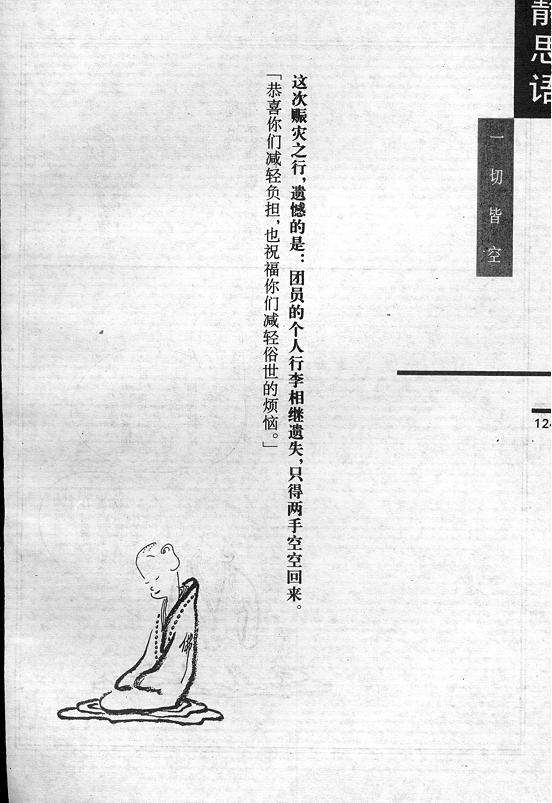 静思语
一切皆空
这次赈灾之行，遗憾的是：团员的个人行李相继遗失，只得两手空空回来。
「恭喜你们减轻负担，也祝福你们减轻俗世的烦恼。」
佛